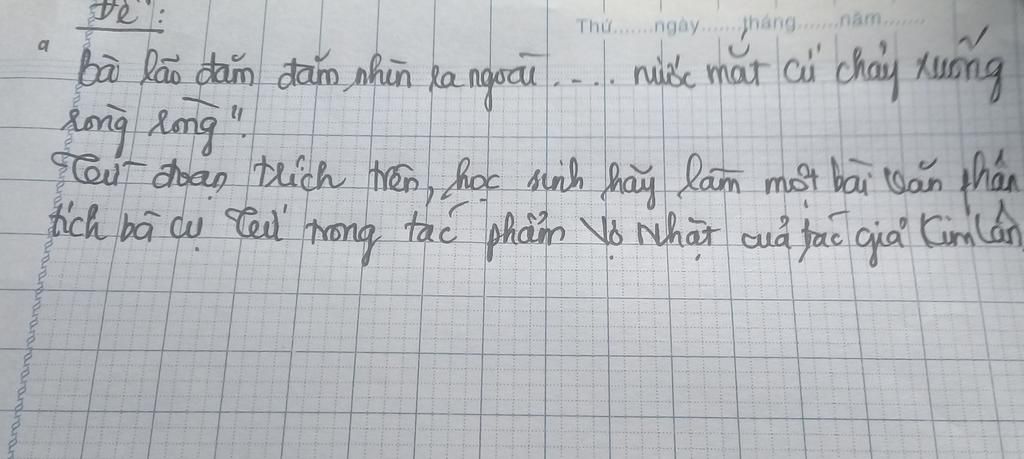 Đề":
Thứ.......ngày.......tháng.......năm.......
a
Bà lão đăm đăm nhìn ra ngoài .... nước mắt cứ chảy xuống
ròng ròng".
Từ đoạn trích trên, học sinh hãy làm một bài văn phân
tích bà cụ Tứ trong tác phẩm Vợ Nhặt của tác giả Kim Lân